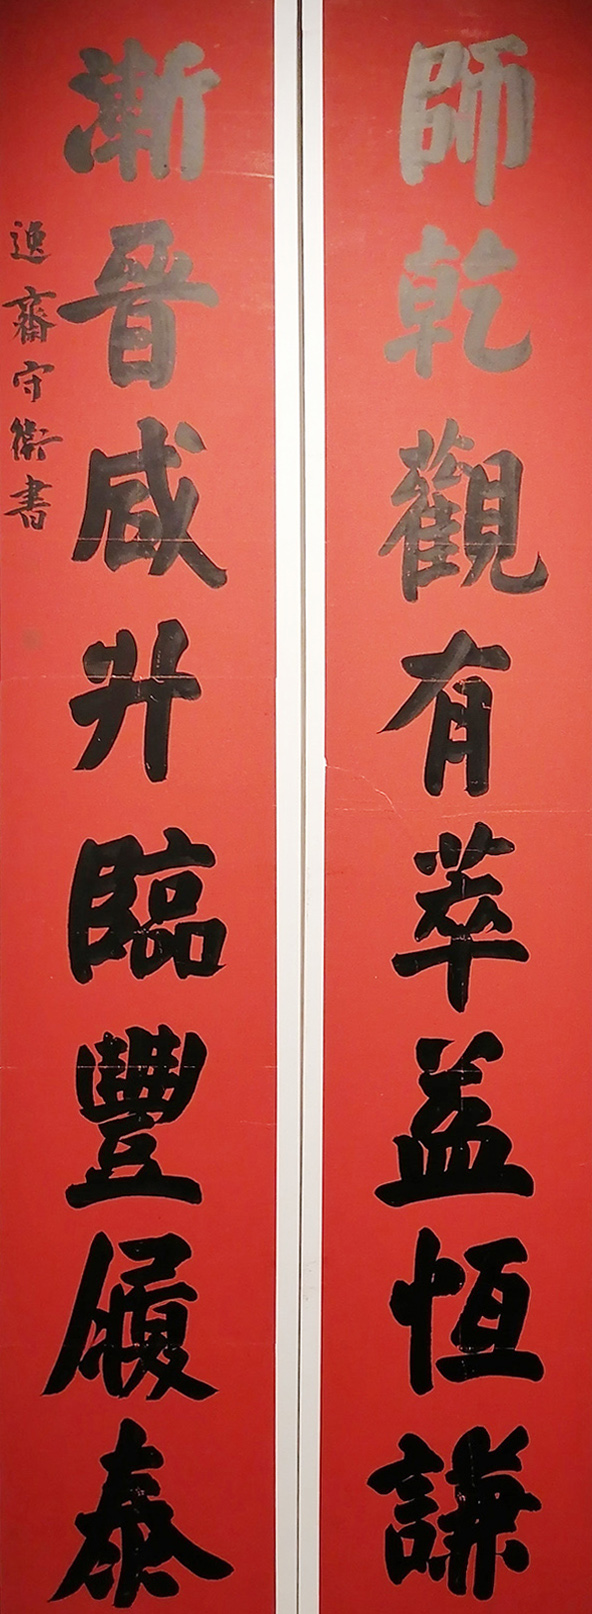 師乾觀有萃益恆謙
漸晉咸升臨豐履泰
逸齋守衛書